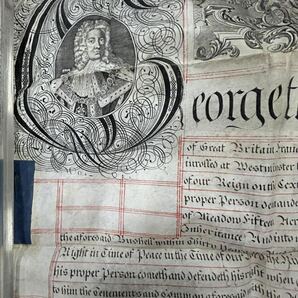 George th
of Great Britain Franc
inrolled at Westminster
of our Reign on the
proper Person demand
of Meadow Fifteen Acr
Inheritance And into
the aforesaid Bushell within Thirty
Right in Time of Peace in the Time of our
his proper Person cometh and defendeth his right when
to him the Tenements and Common aforesaid